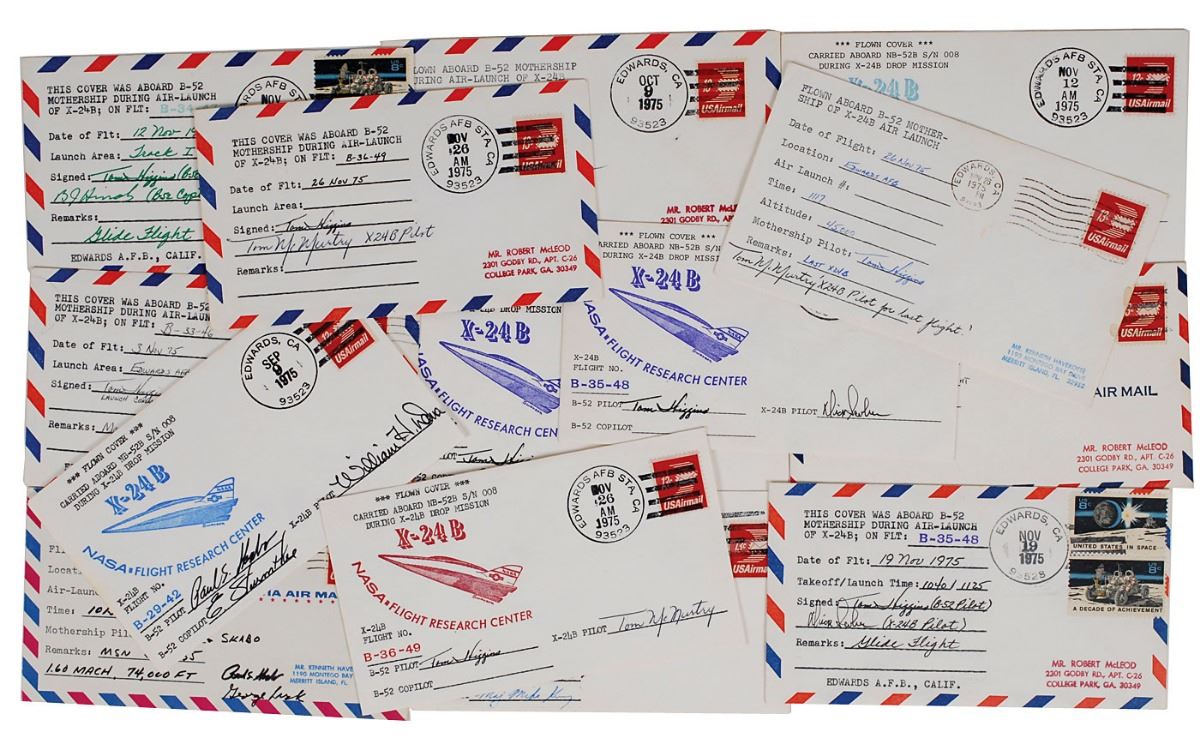 THIS COVER WAS ABOARD B-52
MOTHERSHIP DURING AIR-LAUNCH
OF X-24B; ON FLT: B-34
Date of Flt: 12 Nov
Launch Area: Track I
Signed: Tom Higgins
BJ Hinds
Remarks:
Glide Flight
EDWARDS A.F.B., CALIF.
NOV
FLOWN ABOARD B-52 MOTHERSHIP
DURING AIR-LAUNCH OF X-24B
EDWARDS, CA
OCT
9
1975
93523
USAirmail
MR. ROBERT McLEOD
2301 GODBY RD., APT.
*** FLOWN COVER ***
CARRIED ABOARD NB-52B S/N 008
DURING X-24B DROP MISSION
X-24B
EDWARDS AFB STA. CA
NOV
12
AM
1975
93523
USAirmail
THIS COVER WAS ABOARD B-52
MOTHERSHIP DURING AIR-LAUNCH
OF X-24B; ON FLT: B-36-49
Date of Flt: 26 Nov 75
Launch Area:
Signed: Tom Higgins
Tom McMurtry X24B Pilot
Remarks:
EDWARDS AFB STA. CA
NOV
26
AM
1975
93523
USAirmail
MR. ROBERT McLEOD
2301 GODBY RD., APT. C-26
COLLEGE PARK, GA. 30349
FLOWN ABOARD B-52 MOTHER-
SHIP OF X-24B AIR LAUNCH
Date of Flight: 26 Nov 75
Location: Edwards AFB
Air Launch #:
Time: 1117
Altitude: 45000
Mothership Pilot: Tom Higgins
Remarks: LAST X24B
Tom McMurtry X24B Pilot for last flight!
EDWARDS, CA
1975
USAirmail
MR. KENNETH HAVEKOTTE
1190 MONTEGO BAY DRIVE
MERRITT ISLAND, FL. 32952
THIS COVER WAS ABOARD B-52
MOTHERSHIP DURING AIR-LAUNCH
OF X-24B; ON FLT: B-33-46
Date of Flt: 3 Nov 75
Launch Area: Edwards AFB
Signed: Tom Higgins
Remarks:
DROP MISSION
X-24B
NASA FLIGHT RESEARCH CEN
Tom Higgins
*** FLOWN COVER ***
CARRIED ABOARD NB-52B S/N
DURING X-24B DROP MISS
X-24B
NASA FLIGHT RESEARCH CENTER
X-24B
FLIGHT NO.
B-35-48
B-52 PILOT Tom Higgins
X-24B PILOT
B-52 COPILOT
USAirmail
AIR MAIL
MR. ROBERT McLEOD
2301 GODBY RD., APT. C-26
COLLEGE PARK, GA. 30349
*** FLOWN COVER ***
CARRIED ABOARD NB-52B S/N 008
DURING X-24B DROP MISSION
X-24B
NASA FLIGHT RESEARCH CENTER
EDWARDS, CA
SEP
9
1975
93523
USAirmail
X-24B PILOT William H. Dana
X-24B
FLIGHT NO.
B-29-42
B-52 PILOT
B-52 COPILOT
Time:
Mothership Pil
SKABO
Remarks: MSN
1.60 MACH, 74,000 FT
George Lusk
VIA AIR MAIL
MR. KENNETH HAVE
1190 MONTEGO BAY
MERRITT ISLAND, FL.
*** FLOWN COVER ***
CARRIED ABOARD NB-52B S/N 008
DURING X-24B DROP MISSION
X-24B
NASA FLIGHT RESEARCH CENTER
EDWARDS AFB STA. CA
NOV
26
AM
1975
93523
USAirmail
X-24B
FLIGHT NO.
B-36-49
B-52 PILOT Tom Higgins
X-24B PILOT Tom McMurtry
B-52 COPILOT
THIS COVER WAS ABOARD B-52
MOTHERSHIP DURING AIR-LAUNCH
OF X-24B; ON FLT: B-35-48
Date of Flt: 19 Nov 1975
Takeoff/Launch Time: 1040/1125
Signed: Tom Higgins (B52 Pilot)
(X-24B Pilot)
Remarks: Glide Flight
EDWARDS A.F.B., CALIF.
EDWARDS, CA
NOV
19
1975
UNITED STATES IN SPACE
A DECADE OF ACHIEVEMENT
MR. ROBERT McLEOD
2301 GODBY RD., APT. C-26
COLLEGE PARK, GA. 30349